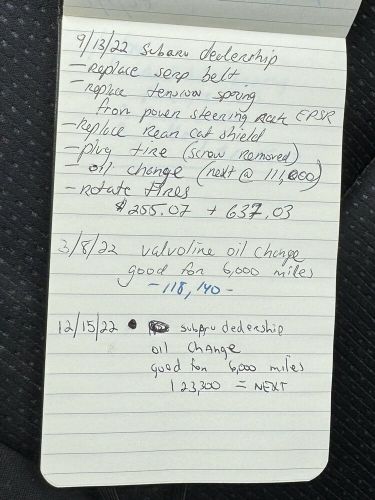 9/13/22 Subaru dealership
- replace serp belt
- replace tension spring
from power steering rack EPSR
- replace rear cat shield
- plug tire (screw removed)
- oil change (next @ 111,000)
- rotate tires
$255.07 + 637.03
3/8/22 Valvoline oil change
good for 6,000 miles
- 118,140 -
12/15/22 subaru dedership
oil change
good for 6,000 miles
123,300 = NEXT